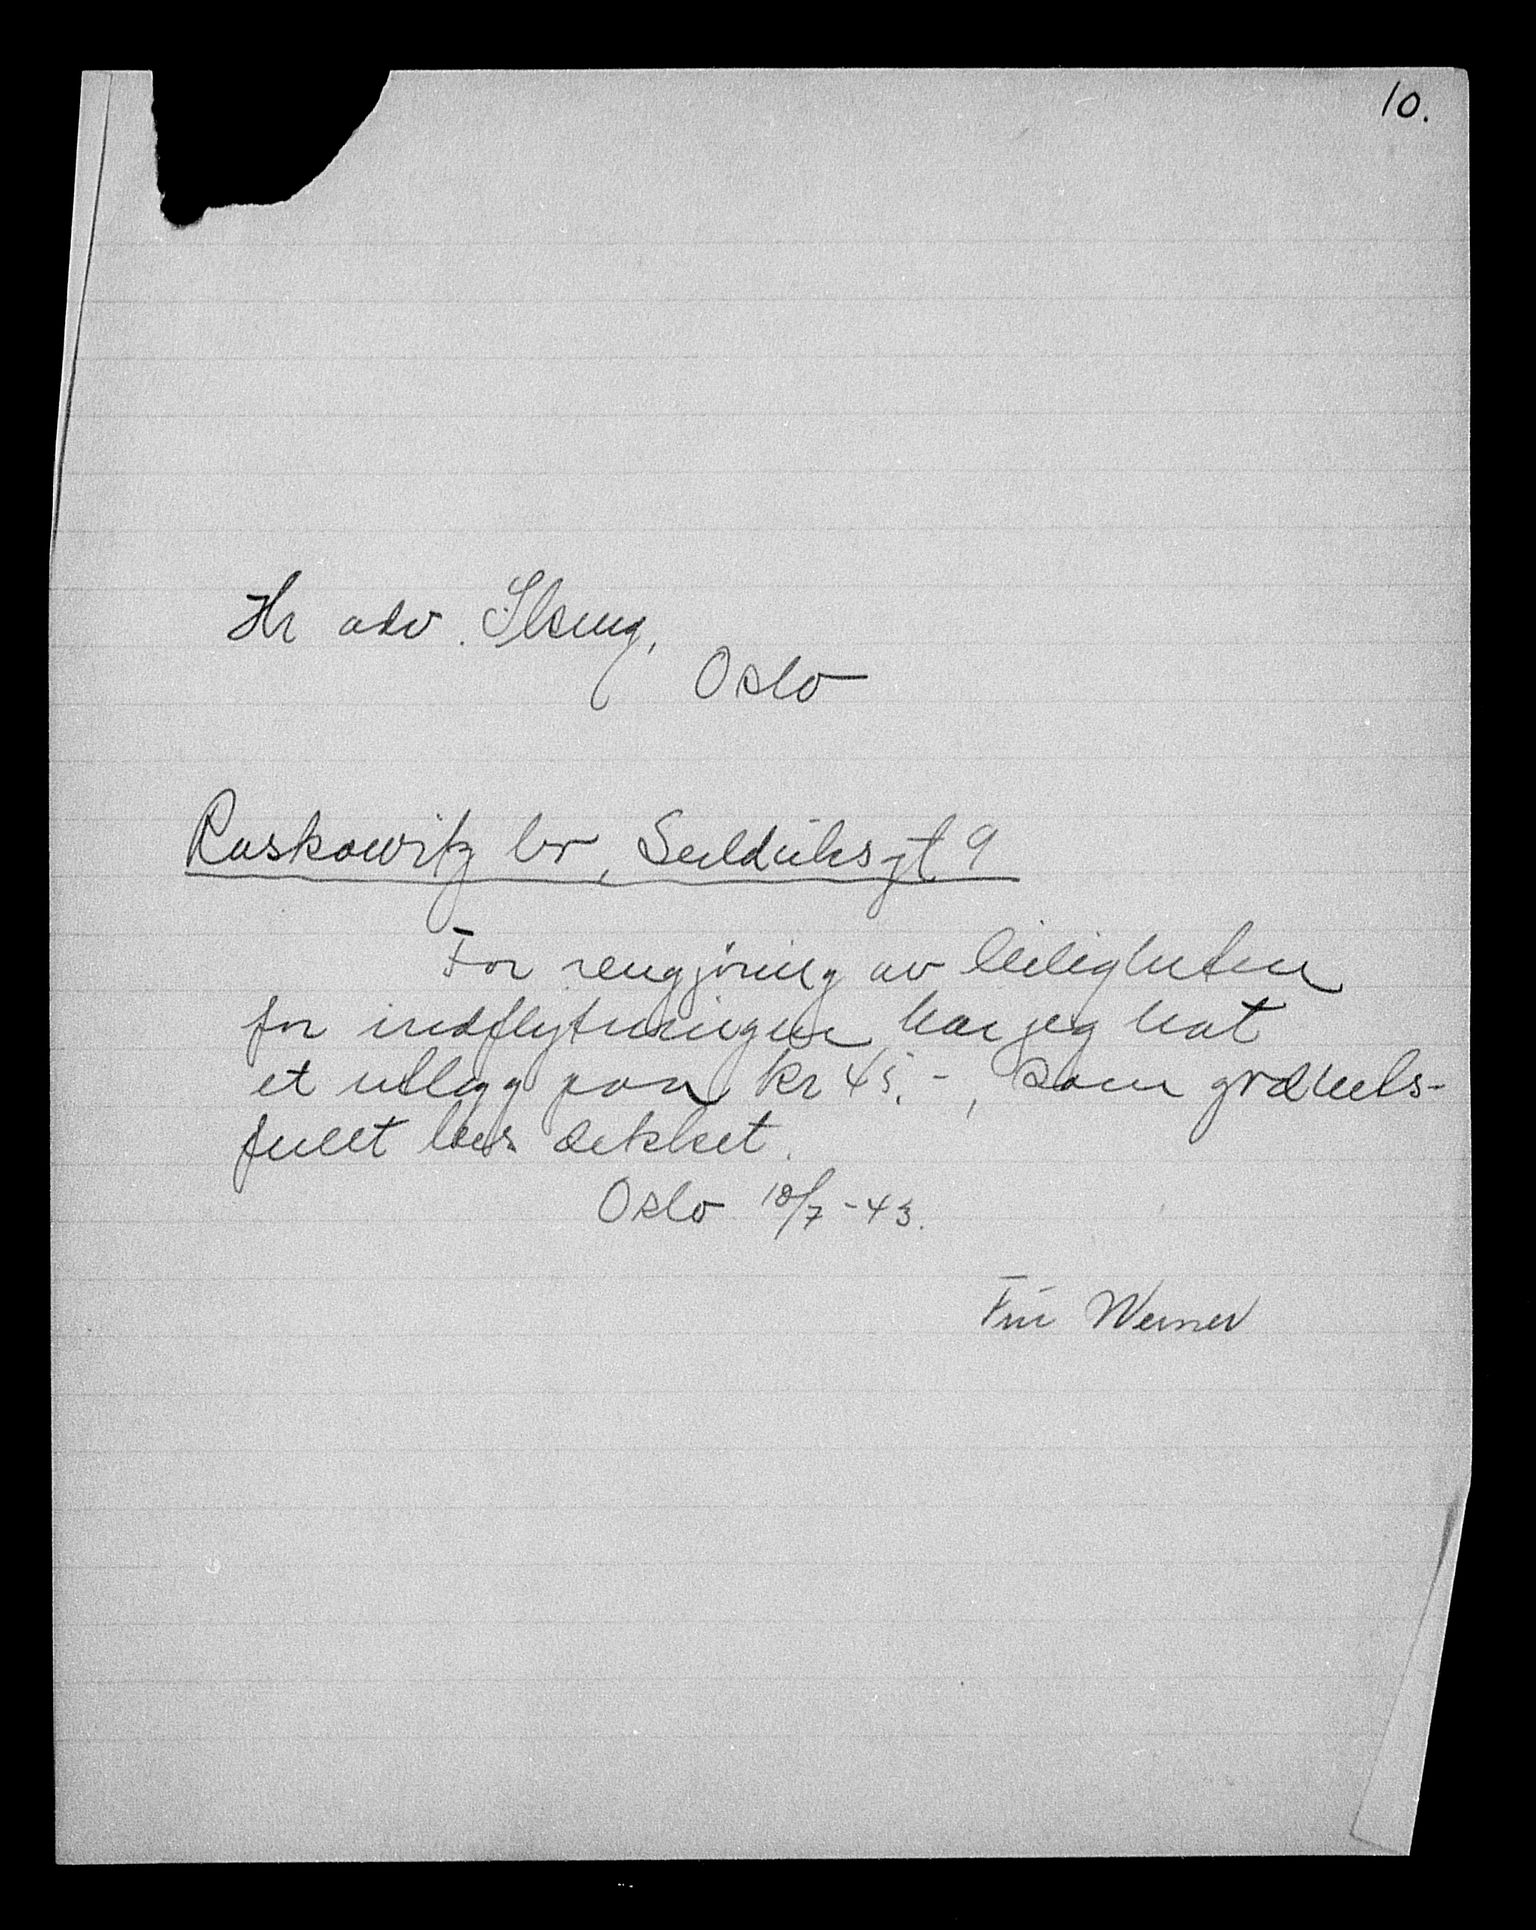 10.
Hr adv. Skeug,
Oslo
Raskowitz bo, Seilduksgt 9
For rengjøring av leiligheten
for indflytningen har jeg hat
et utlegg paa kr 45.-, som ønskes
fullt ut dekket.
Oslo 10/7-43.
Fru Werner